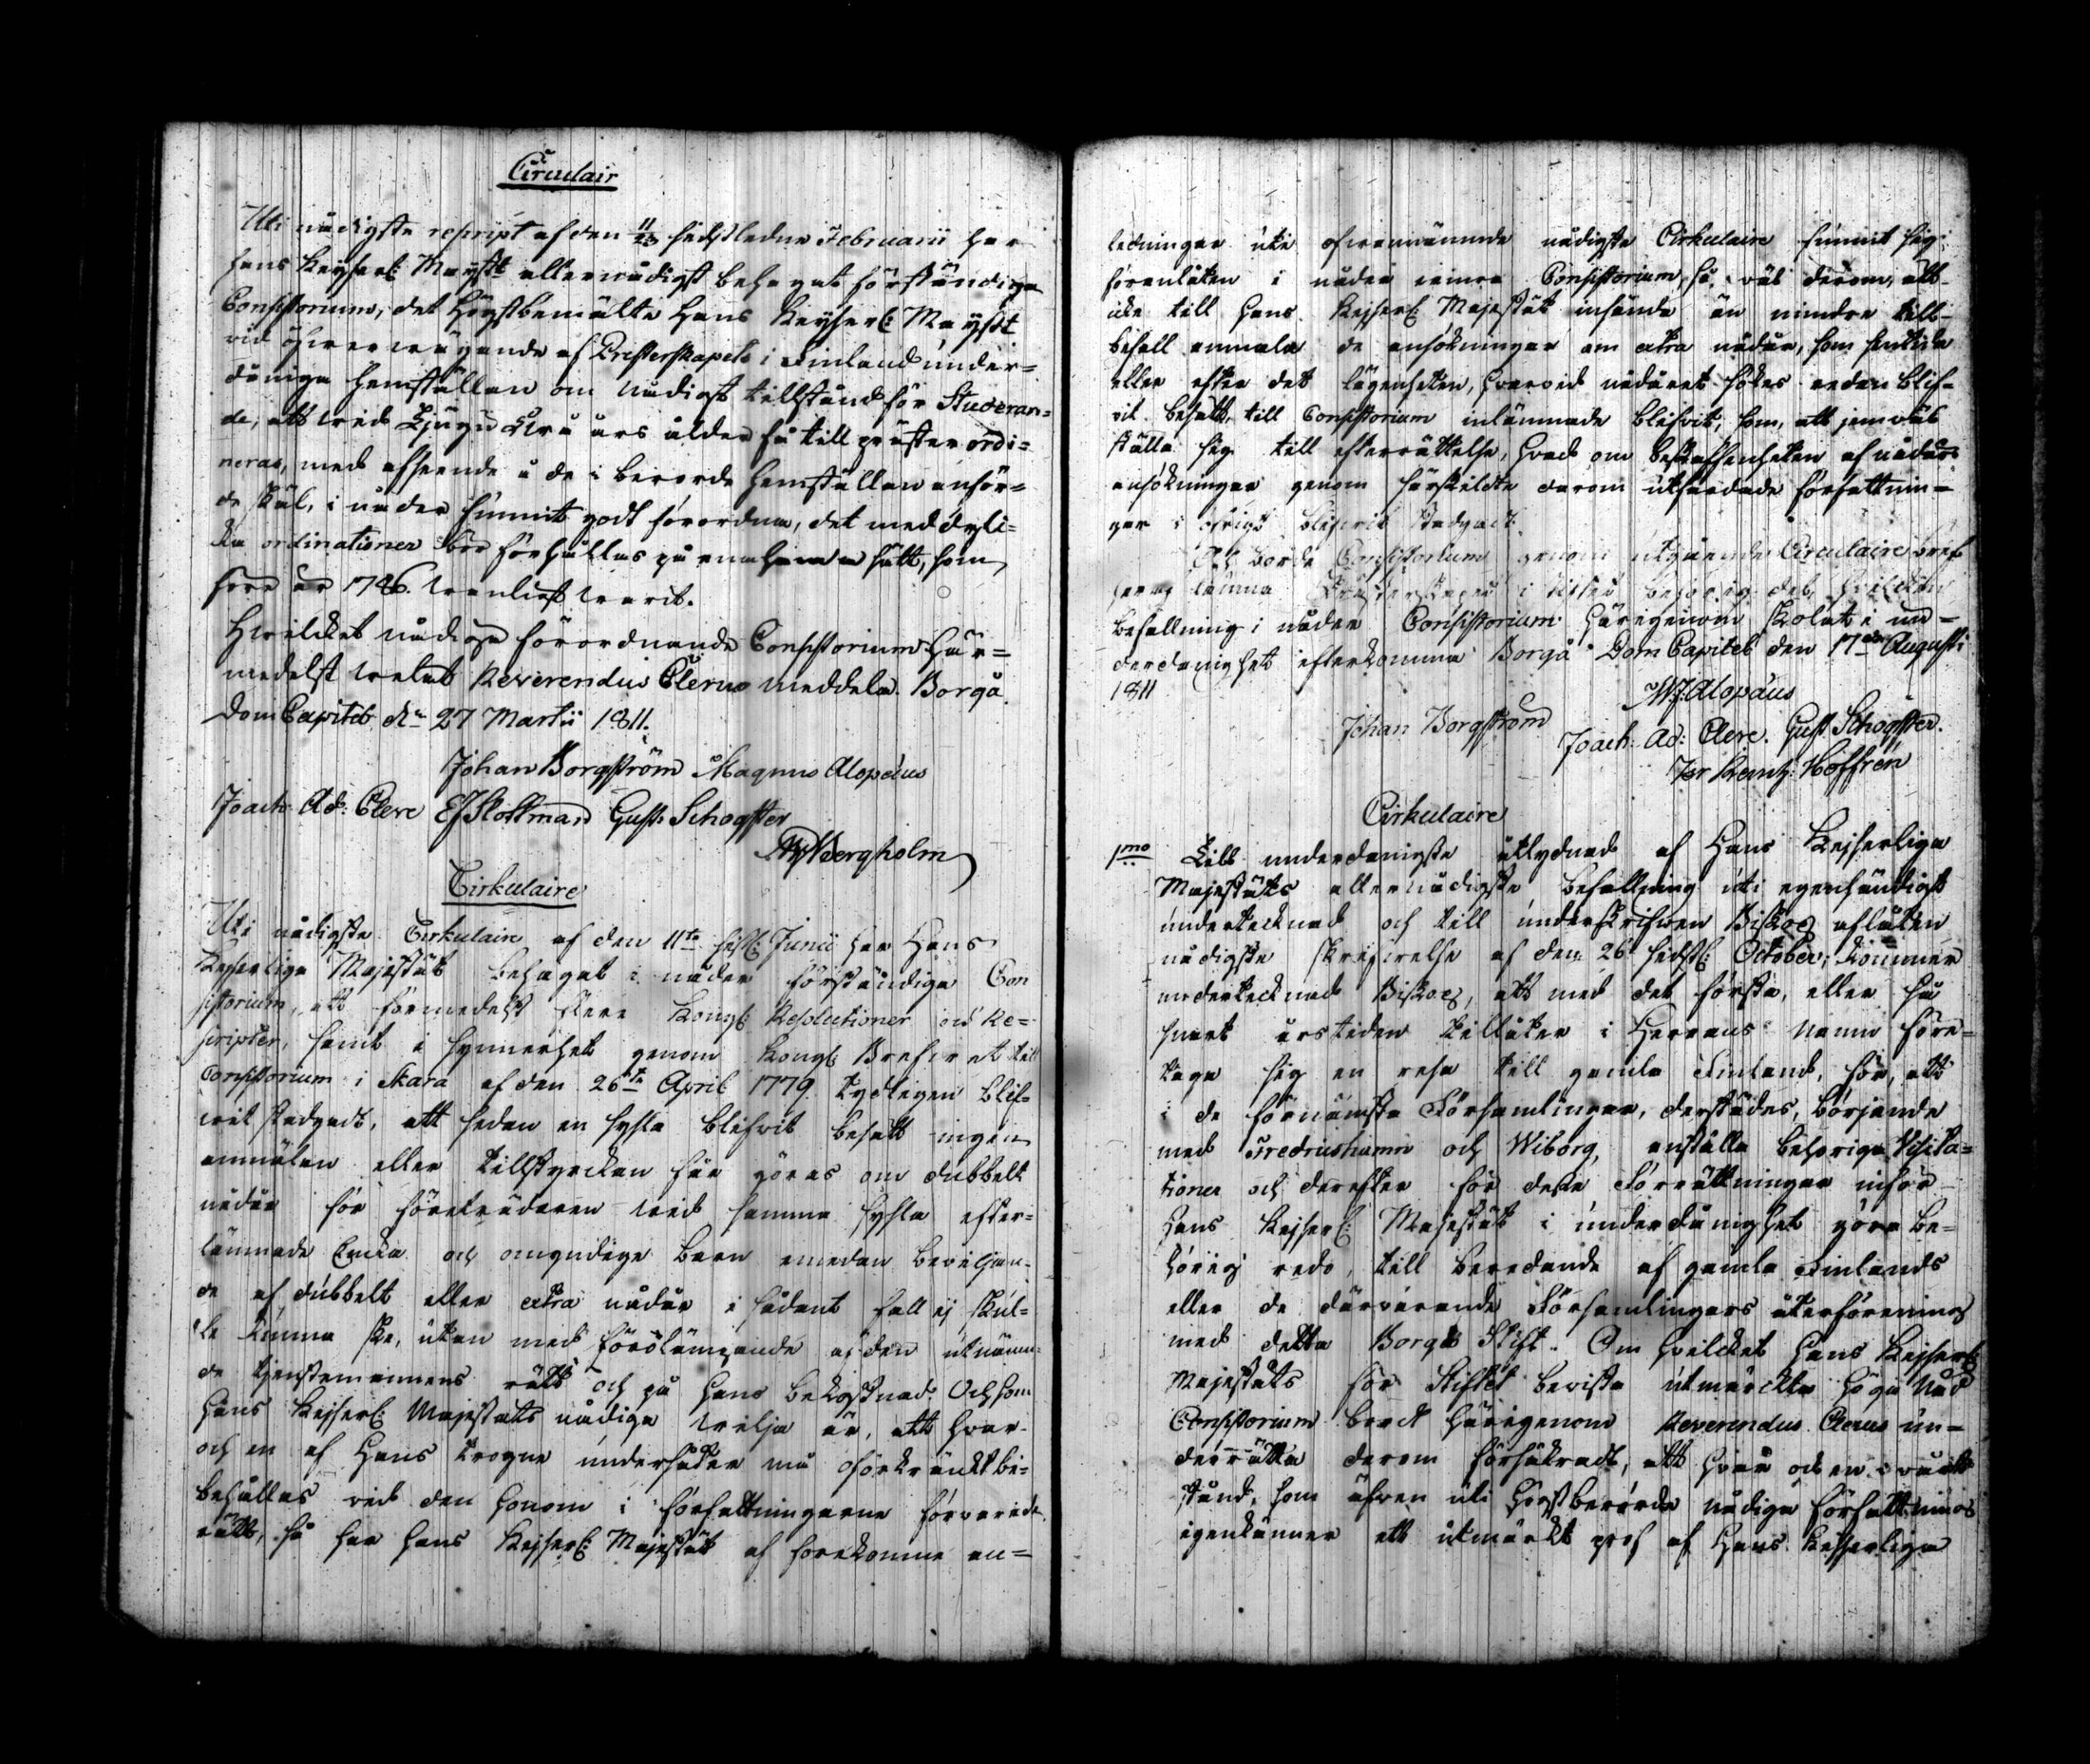 Circulair
Uti nådigste rescript af den 11/23 sidstledne Februarii har
Hans Keyserl: Mayst:t allernådigst behagat förständiga
Consistorium, det Högstbemälte Hans Keyserl: Mayst:t
vid öfwerwägande af Presterskapets i Finland under=
dåniga hemställan om nådigt tillstånd för Studeran=
de, att wid Tjugu twå års ålder få till prester ordi=
neras, med afseende å de i berörde hemställan anför=
de skäl, i nåder funnit godt förordna, det med dyli=
ka ordinationer bör förhållas på samma sätt, som
före år 1786. wanligst warit.
Hwilcket nådiga förordnande Consistorium här=
medelst welat Reverendus Clerus meddela. Borgå
Dom Capitel d:n 27 Martii 1811.
Johan Borgström Magnus Alopæus
Joach: Ad: Cleve EJ Stottman Gust: Schogster
Bergholm
Cirkulaire
Uti nådigste Cirkulaire af den 11te sistl: Junii har Hans
Kejserliga Majestät behagat i nåder förständiga Con
sistorium, att förmedelst flere Kongl: Resolutioner och Re=
scripter, samt i synnerhet genom Kongl: Brefwet till
Consistorium i Skara af den 26te April 1779. tydligen blif=
wit stadgadt, att sedan en sysla blifvit besatt ingen
anmälan eller tillstyrckan får göras om dubbelt
nådår för företrädaren wid samma sysla efter=
lämnade Enka och omyndige barn emedan beviljan=
de af dubbelt eller extra nådår i sådant fall ej skul=
le kunna ske, utan med förolämpande af den utnämn=
de tjenstemannens rätt och på hans bekostnad. Och som
Hans Kejserl: Majestäts nådiga wilja är, att hvar
och en af Hans trogne undersåter må oförkränkt bi=
behållas vid den honom i författningarne förvarade
rätt, så har Hans Kejserl: Majestät af förekomne an=
ledningar uti ofwannämnde nådigste Cirkulaire funnit sig
förenlåten i nåder Consistorium, så wäl derom, att
icke till Hans Kejserl: Majestät insända än mindre till
bifall anmäla de ansökningar om extra nådår, som
eller efter det lägenheten, hvarvid nådåret sökes redan blif=
vit besatt, till Consistorium inlämnade blifvit, som, att jemväl
ställa sig till efterrättelse, hvad om beskaffenheten af nådårs
ansökningar genom särskildte derom utfärdade författnin=
gar i öfrigt blifwit stadgadt.
Och borde Consistorium genom utgående Circulaire bref
lämna Presterskapet i Stiftet
befallning i nåder Consistorium härigenom skolat i un=
derdånighet efterkomma Borgå Dom Capitel den 17de Augusti
1811
M Alopæus
Johan Borgström Joach: Ad: Cleve. Gust Schogster.
Hoffrén
Cirkulaire
1mo Till underdånigste åtlydnad af Hans Kejserliga
Majestäts allernådigste befallning uti egenhändigt
undertecknad och till underskrifwen Biskop aflåten
nådigste skrifwelse af den 26 sidstl: October, kommer
undertecknad Biskop, att med det första, eller så
snart årstiden tillåter i Herrans namn före=
taga sig en resa till gamla Finland, för, att
i de förnämsta Församlingar, derstädes, börjande
med Fredrichshamn och Wiborg, anställa behöriga Visita=
tioner och derefter för desse Förrättningar inför
Hans Kejserl: Majestät i underdånighet göra be=
hörig redo, till beredande af gamla Finlands
eller de därvarande Församlingars återförening
med detta Borgå Stift. Om hvilcket Hans Kejserl:
Majestäts för Stiftet beviste utmärckte höga Nåd
Consistorium bordt härigenom Reverendus Clerus un=
derrätta derom försäkradt, att hvar och en
stånd, som äfwen uti Högstberörde nådiga författning
igenkänner ett utmärkt prof af Hans Kejserliga